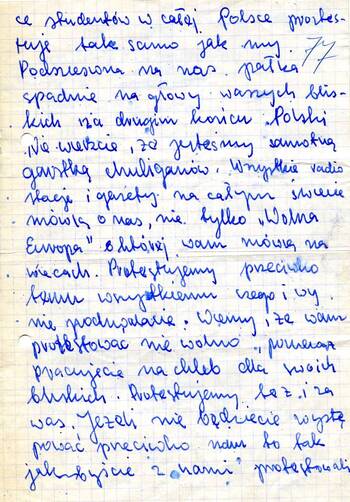 ce studentów w całej Polsce protes-
tuje tak samo jak my. 77
Podniesiona na nas pałka
spadnie na głowy waszych blis-
kich na drugim końcu Polski
Nie wierzcie, że jesteśmy samotną
garstką chuliganów. Wszystkie radio
stacje i gazety na całym świecie
mówią o nas, nie tylko „Wolna
Europa" o której wam mówią na
wiecach. Protestujemy przeciwko
temu wszystkiemu czego i wy
nie pochwalacie. Wiemy, że wam
protestować nie wolno, ponieważ
pracujecie na chleb dla swoich
bliskich. Protestujemy też i za
was. Jeżeli nie będziecie wystę
pować przeciwko nam to tak
jakbyście z „nami" protestowali